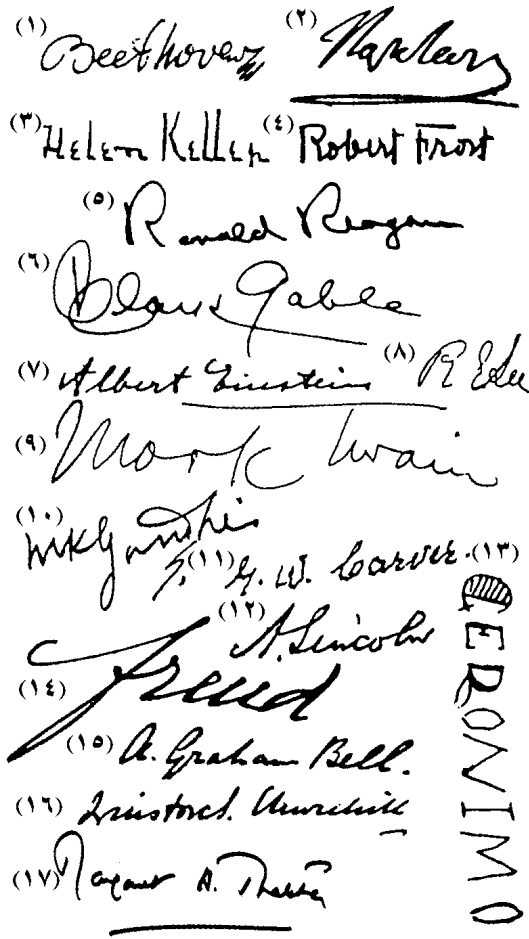 (١) Beethoven (٢) Napoleon
(٣) Helen Keller (٤) Robert Frost
(٥) Ronald Reagan
(٦) Clark Gable
(٧) Albert Einstein (٨) R E Lee
(٩) Mark Twain
(١٠) MKGandhi
(١١) G. W. Carver. (١٣) GERONIMO
(١٢) A. Lincoln
(١٤) Freud
(١٥) A. Graham Bell.
(١٦) Winston S. Churchill
(١٧) Margaret H. Thatcher